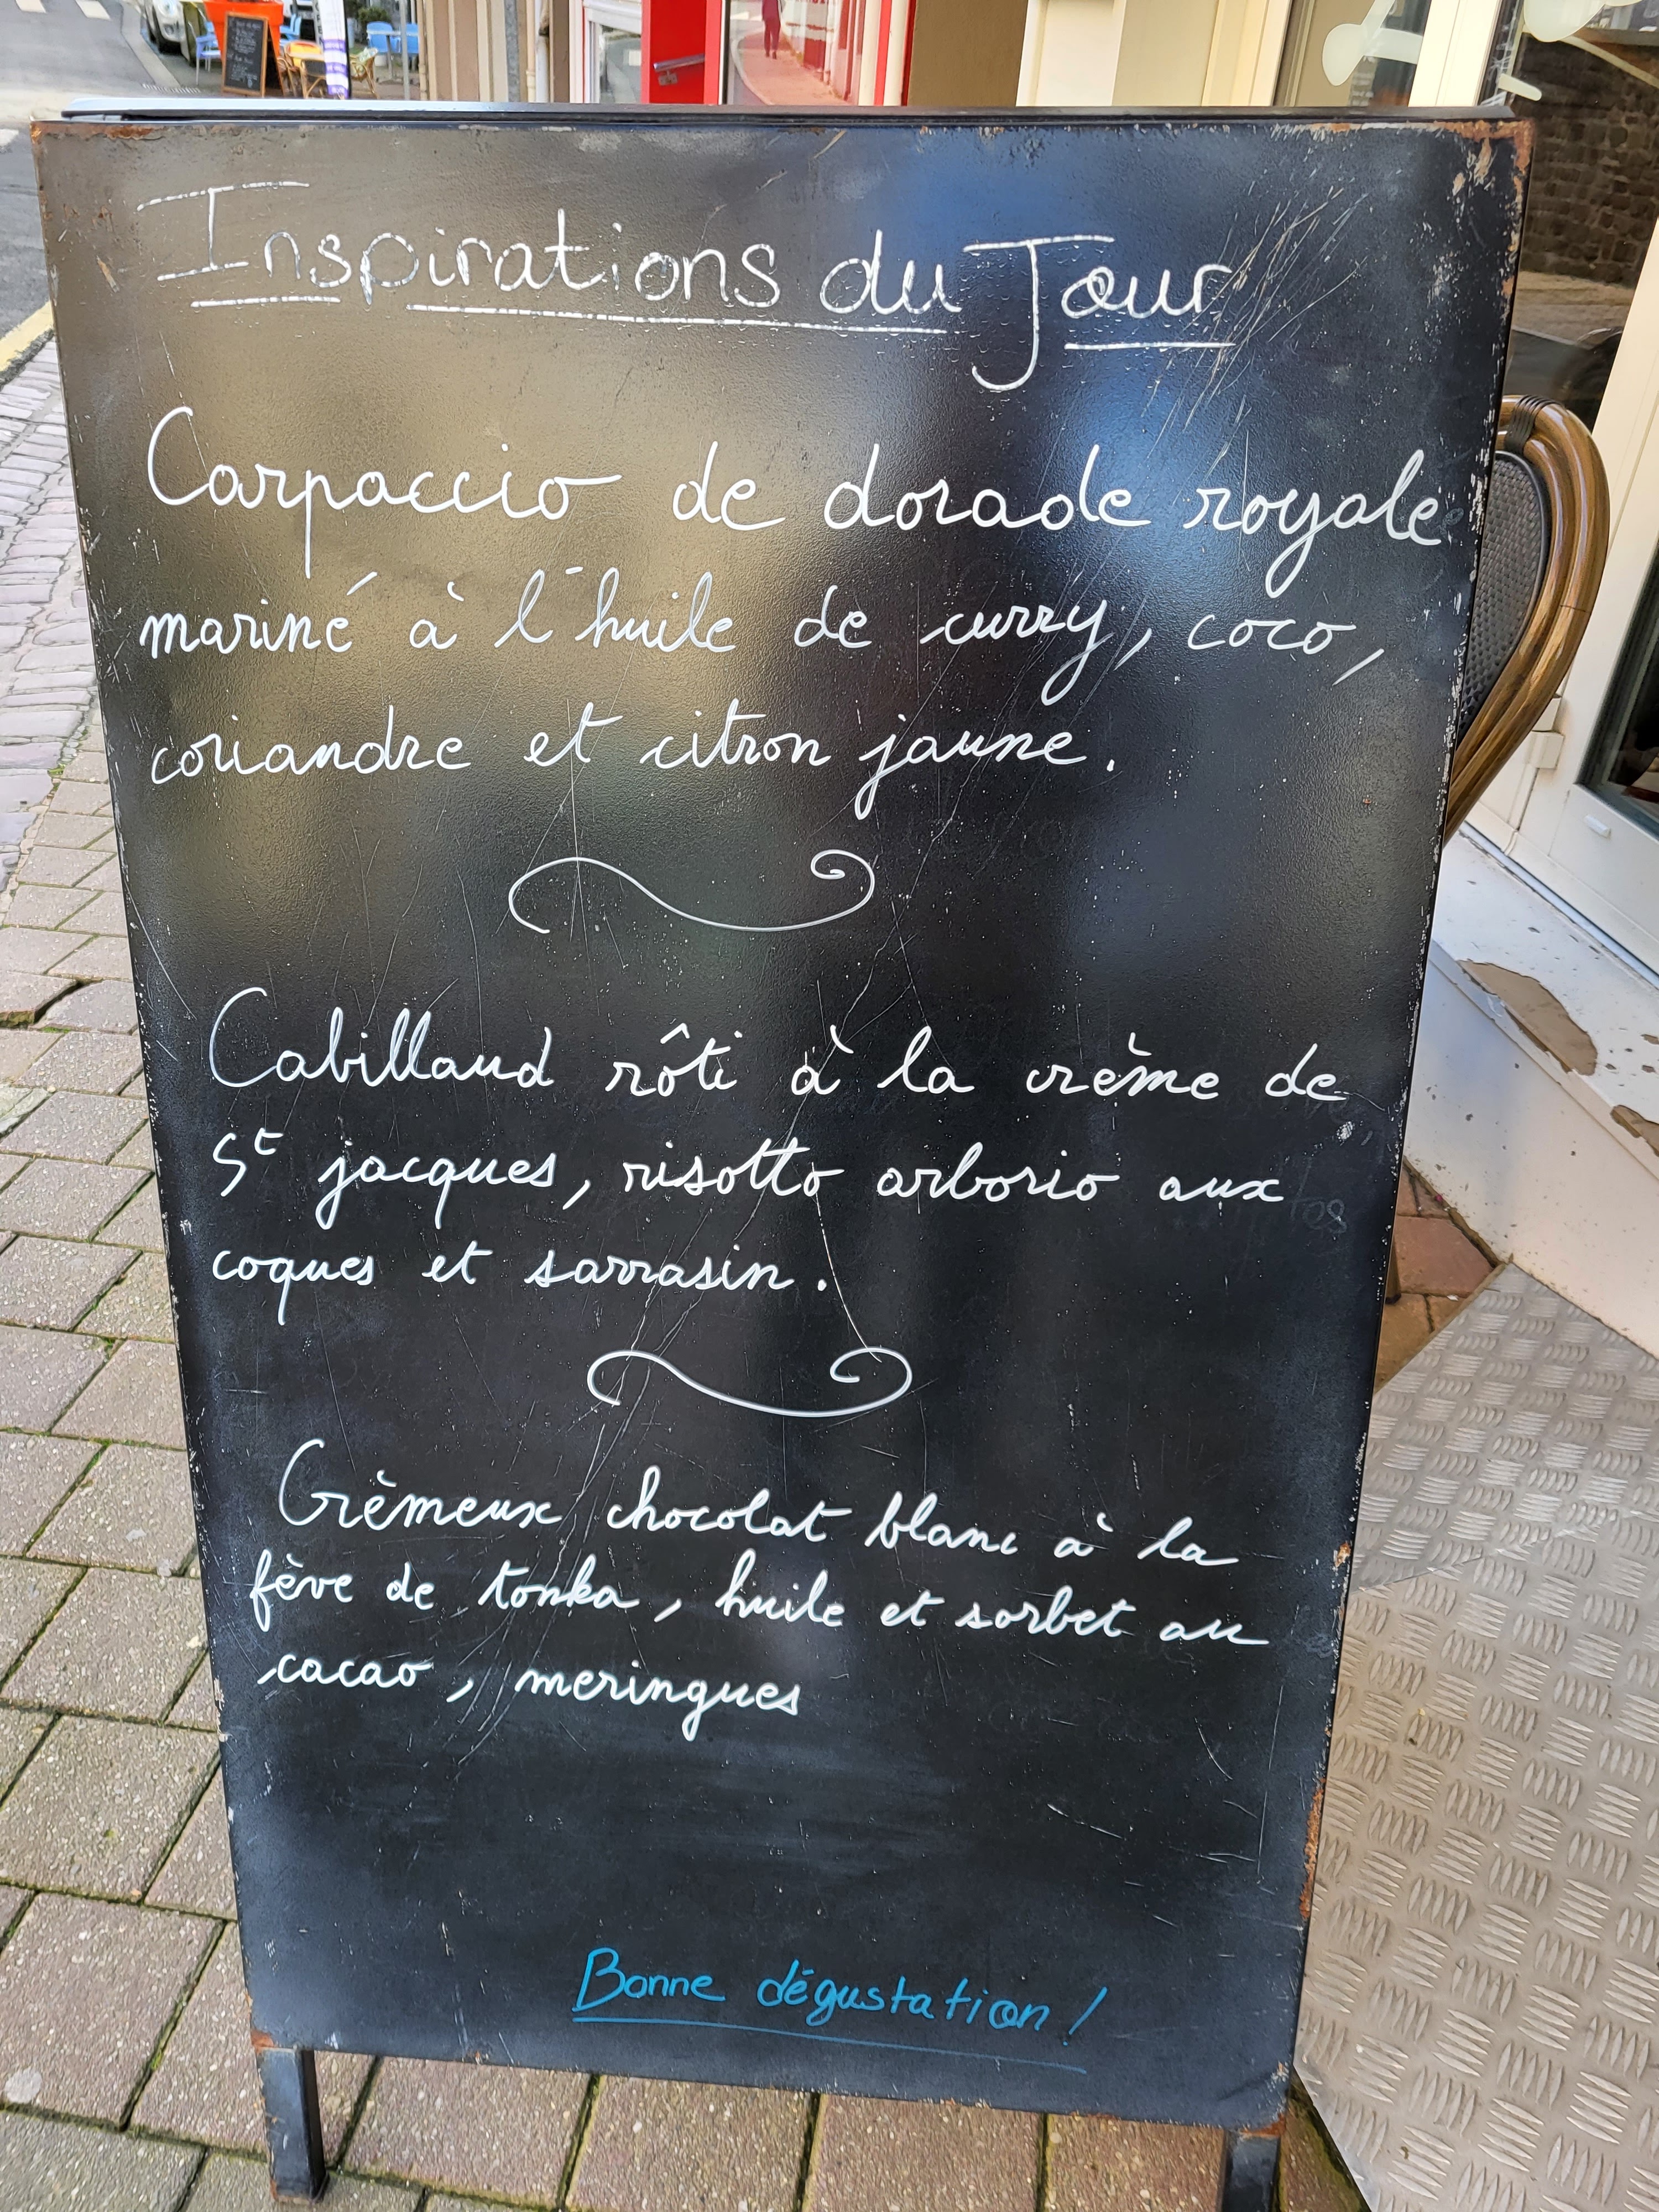 Inspirations du Jour
Carpaccio de dorade royale
mariné à l'huile de curry, coco,
coriandre et citron jaune.
Cabillaud rôti à la crème de
St jacques, risotto arborio aux
coques et sarrasin.
Crèmeux chocolat blanc à la
fève de tonka, huile et sorbet au
cacao, meringues
Bonne dégustation !